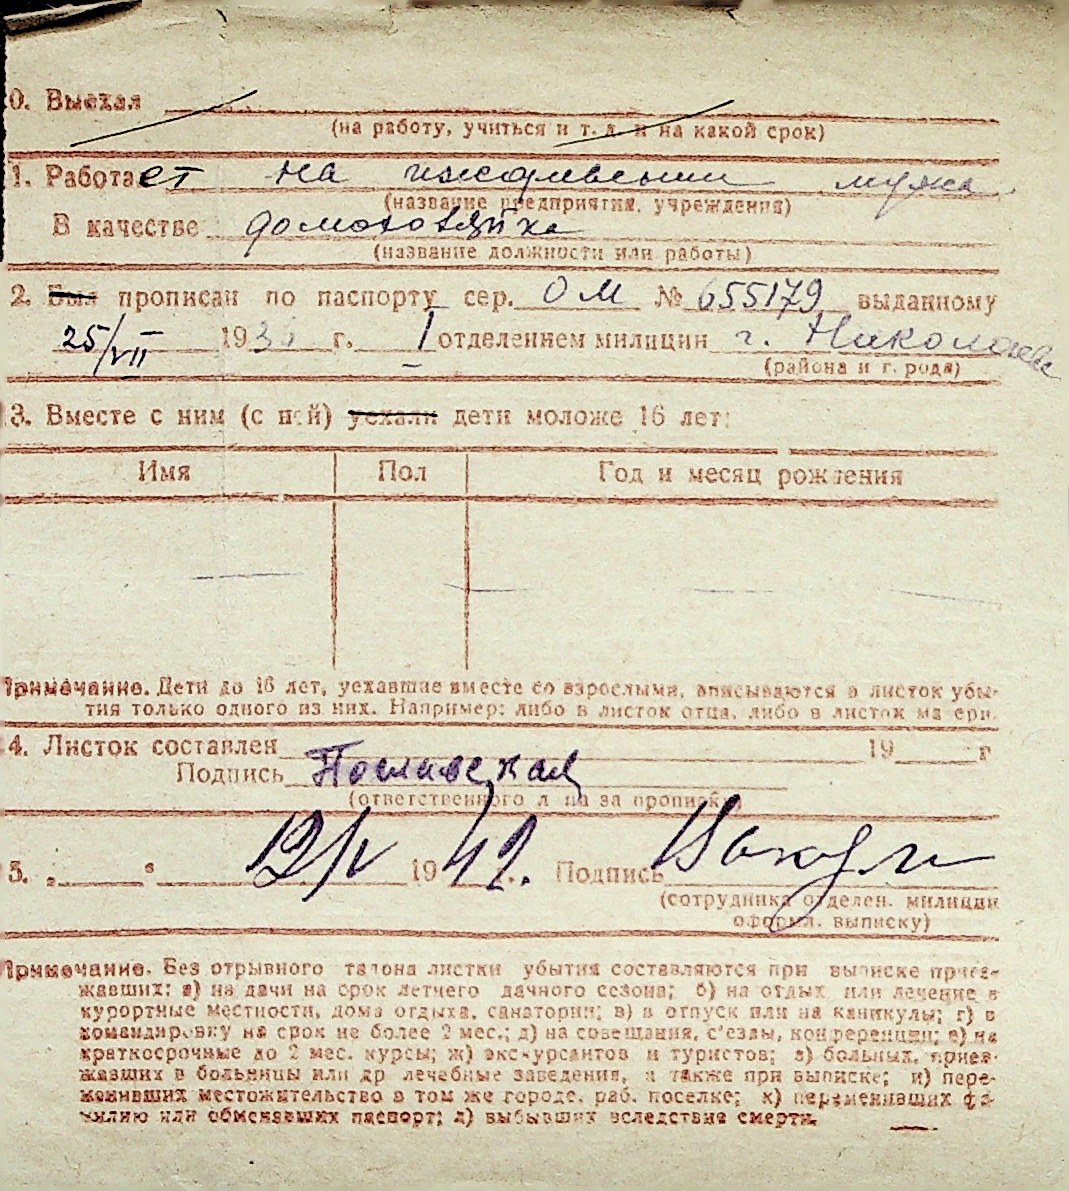 0. Выехал
(на работу, учиться и т. д. и на какой срок)
1. Работает на иждивении мужа
(название предприятия, учреждения)
В качестве домохозяйка
(название должности или работы)
2. Был прописан по паспорту сер. ОМ № 655179 выданному
25/VII 193 г. I отделением милиции г. Николаев
(района и города)
3. Вместе с ним (с ней) уехали дети моложе 16 лет:
Имя Пол Год и месяц рождения
Примечание. Дети до 16 лет, уехавшие вместе со взрослыми, вписываются в листок убы-
тия только одного из них. Например: либо в листок отца, либо в листок матери.
4. Листок составлен 19 г
Подпись
(ответственного лица за прописку)
5. „ “ 12/V 1942. Подпись
(сотрудника отделен. милиции
оформл. выписку)
Примечание. Без отрывного талона листки убытия составляются при выписке приез-
жавших: а) на дачи на срок летнего дачного сезона; б) на отдых или лечение в
курортные местности, дома отдыха, санатории; в) в отпуск или на каникулы; г) в
командировку на срок не более 2 мес.; д) на совещания, с'езды, конференции; е) на
краткосрочные до 2 мес. курсы; ж) экскурсантов и туристов; з) больных, приез-
жавших в больницы или др лечебные заведения, а также при выписке; и) пере-
менивших местожительство в том же городе, раб. поселке; к) переменивших фа-
милию или обменявших паспорт; л) выбывших вследствие смерти.